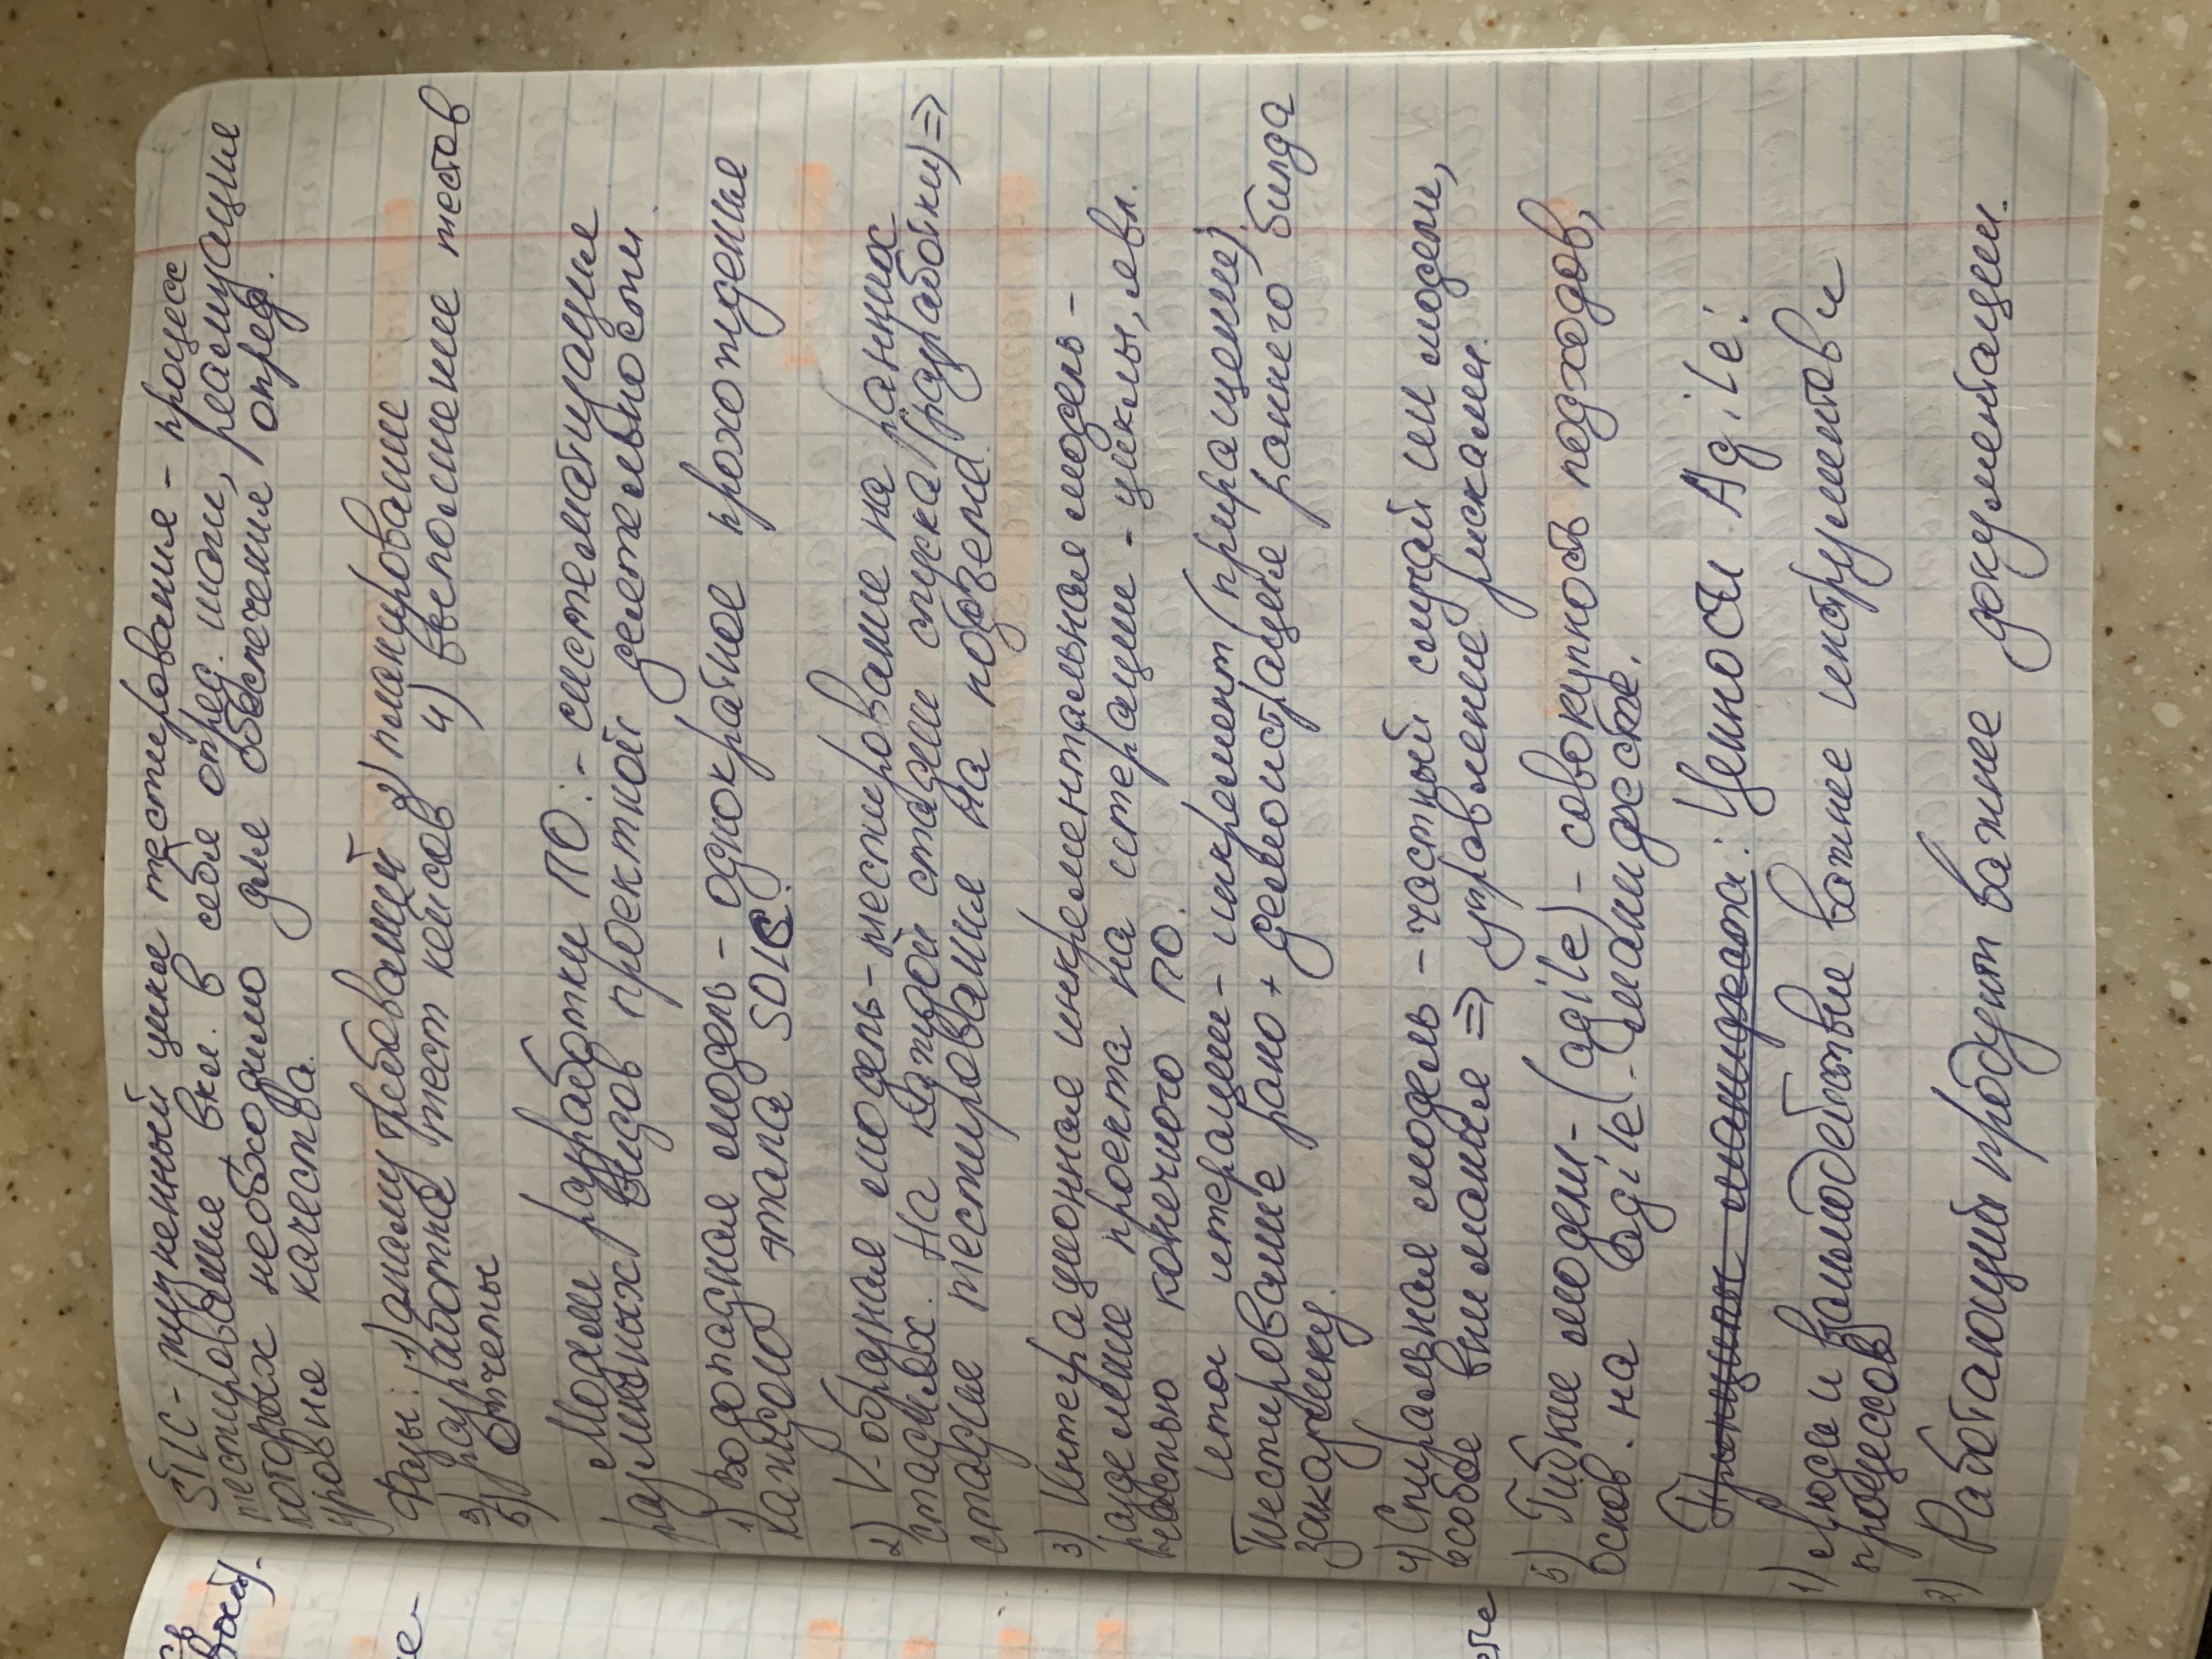 STLC - жизненный цикл тестирования - процесс
тестирования, вкл. в себя опред. шаги, реализация
которых необходимо для обеспечения опред.
уровня качества.
Фазы: 1) анализ требований 2) планирование
3) разработка тест кейсов 4) выполнение тестов
5) отчеты
Модели разработки ПО: - систематизация
различных видов проектной деятельности.
1) Водопадная модель - однократное прохождения
каждого этапа SDLC.
2) V-образная модель - тестирование на ранних
стадиях. На каждой стадии спуска (разработки) =>
стадия тестирования на подъеме.
3) Интеграционная инкрементальная модель -
разделение проекта на итерации - циклы, явл.
частью конечного ПО.
Итог итерации - инкремент (приращение).
Тестирование рано + демонстрация раннего билда
заказчику.
4) Спиральная модель - частный случай ИИ модели,
особое внимания => управление рисками.
5) Гибкие модели - (agile) - совокупность подходов,
основ. на agile - манифесте.
Принципы манифеста: Ценности Agile:
1) Люди и взаимодействие важнее инструментов и
процессов
2) Работающий продукт важнее документации.